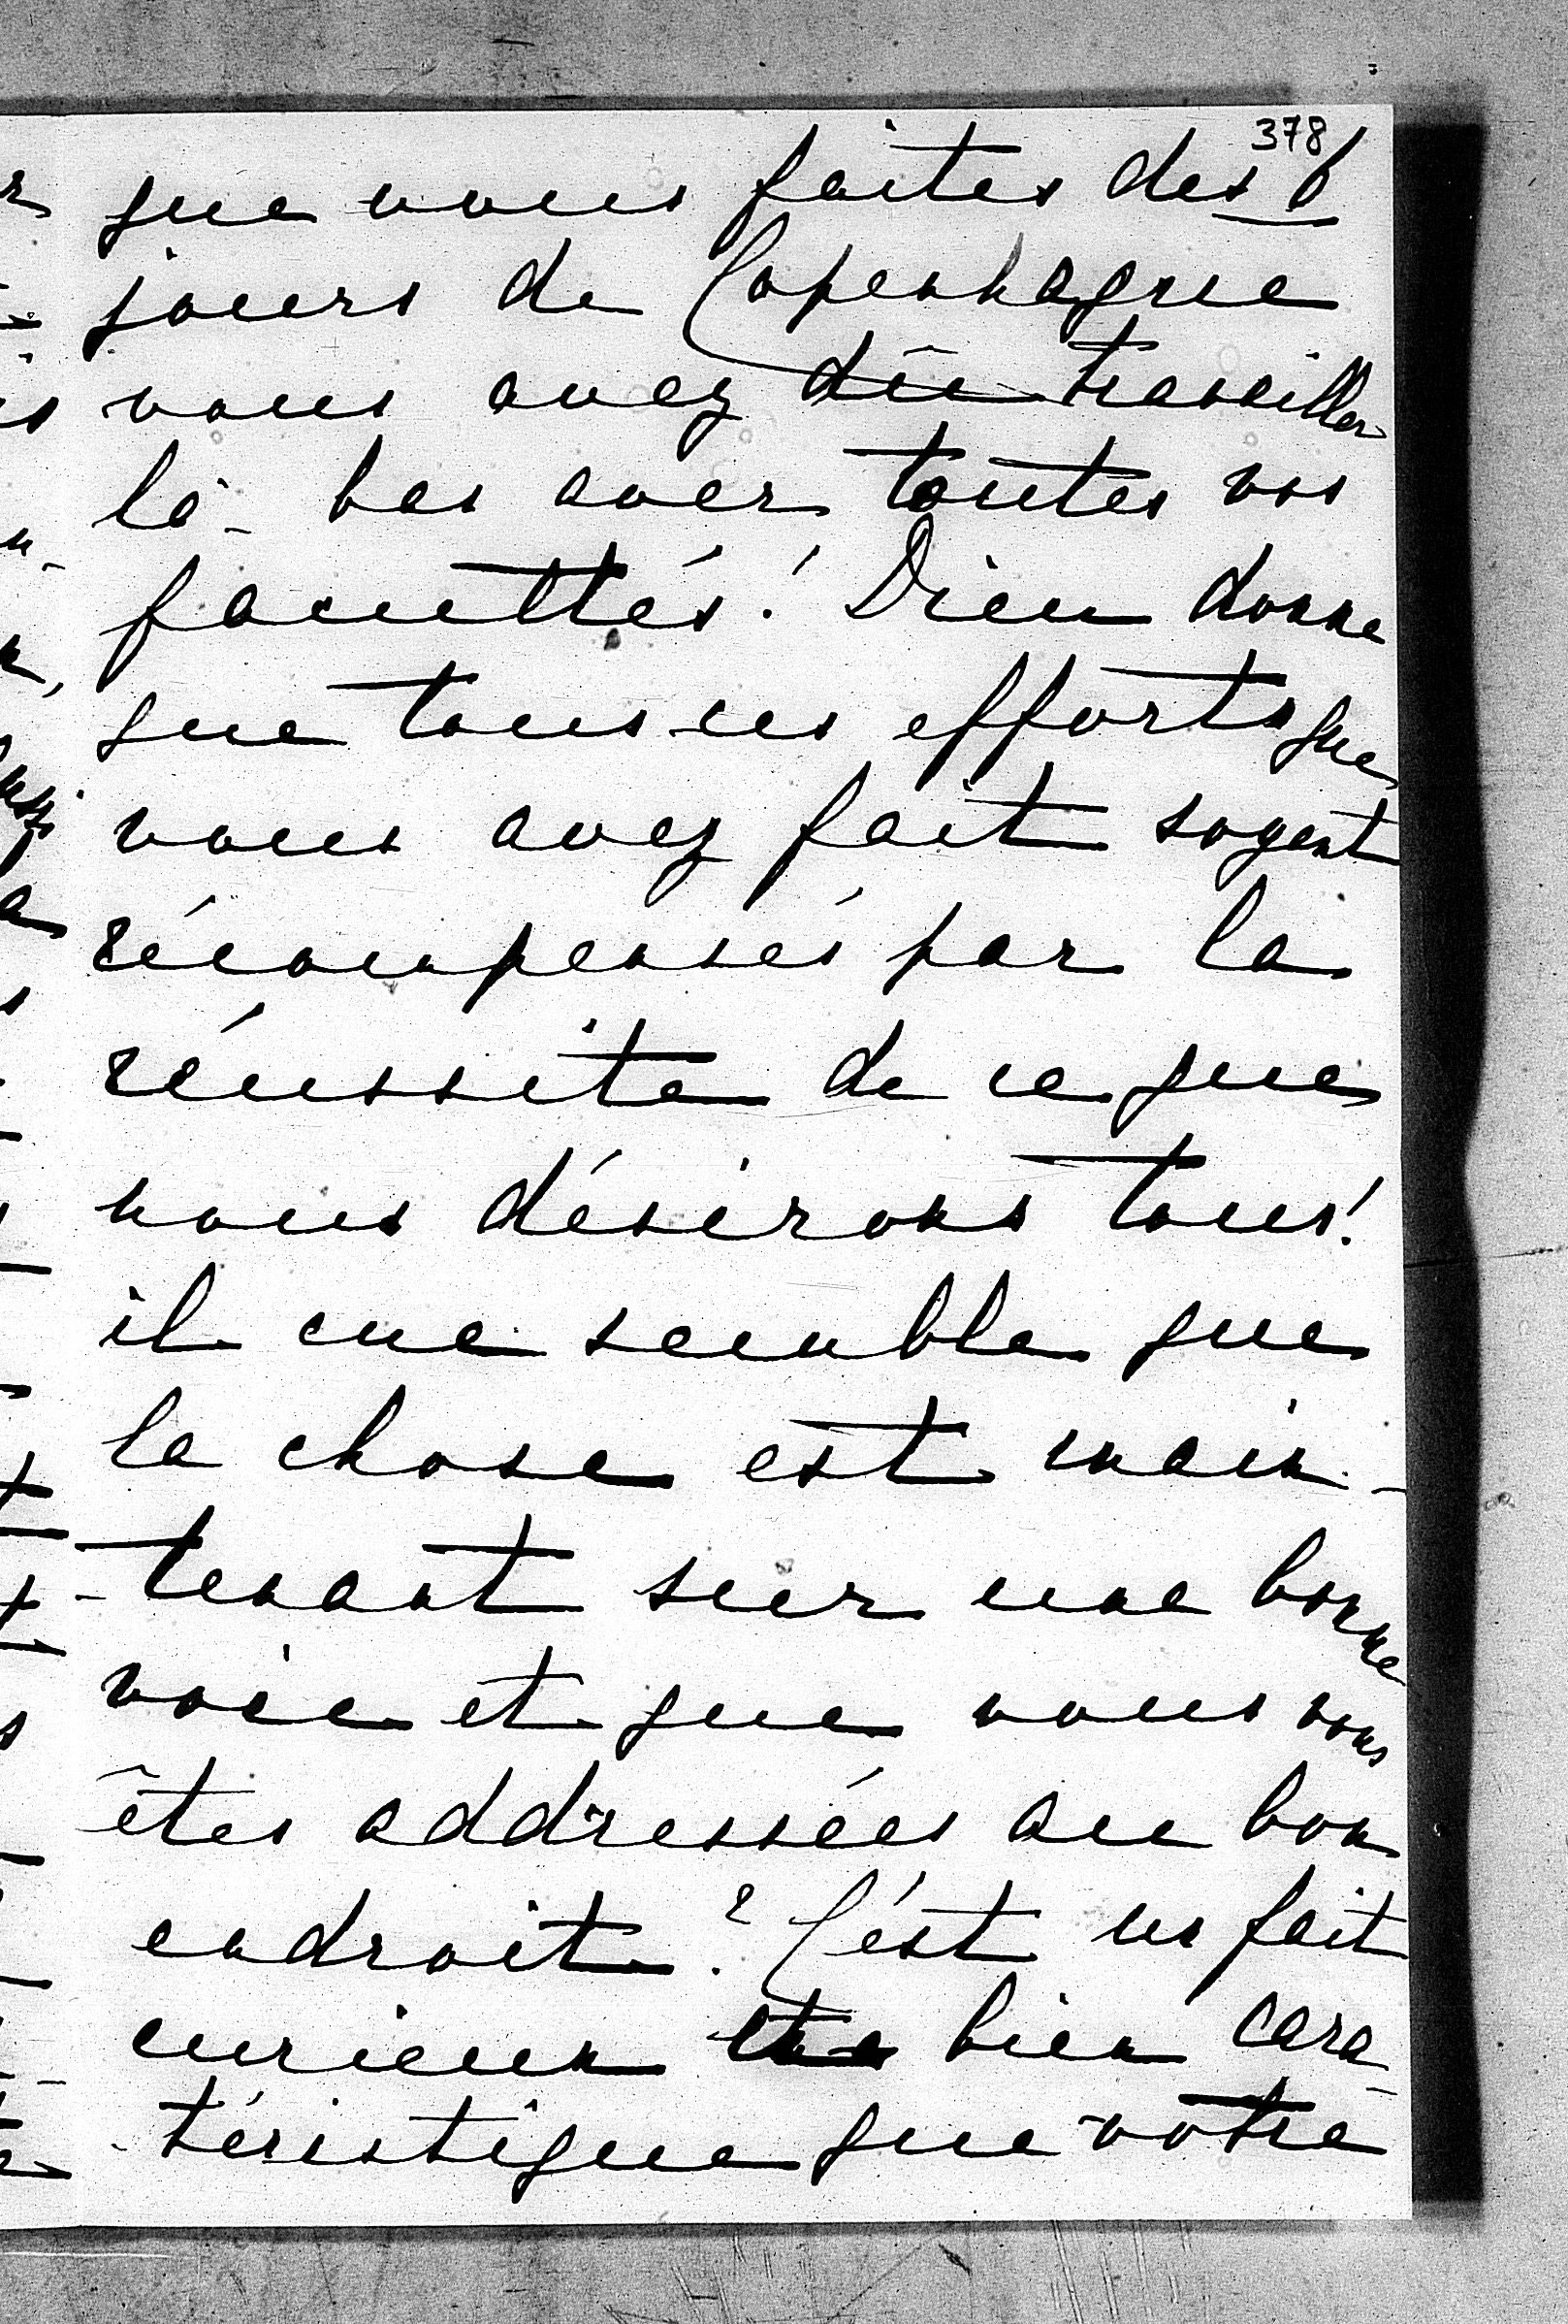 378
que vous faites des 6
jours de Copenhague
vous avez dû travailler
là-bas avec toutes vos
facultés! Dieu donne
que tous ces efforts que
vous avez fait soyent
récompensés par la
réussite de ce que
nous désirons tous!
il me semble que
la chose est main-
-tenant sur une bonne
voie et que vous vous
êtes addressées au bon
endroit? C'est un fait
curieux bien cara-
-téristique que votre